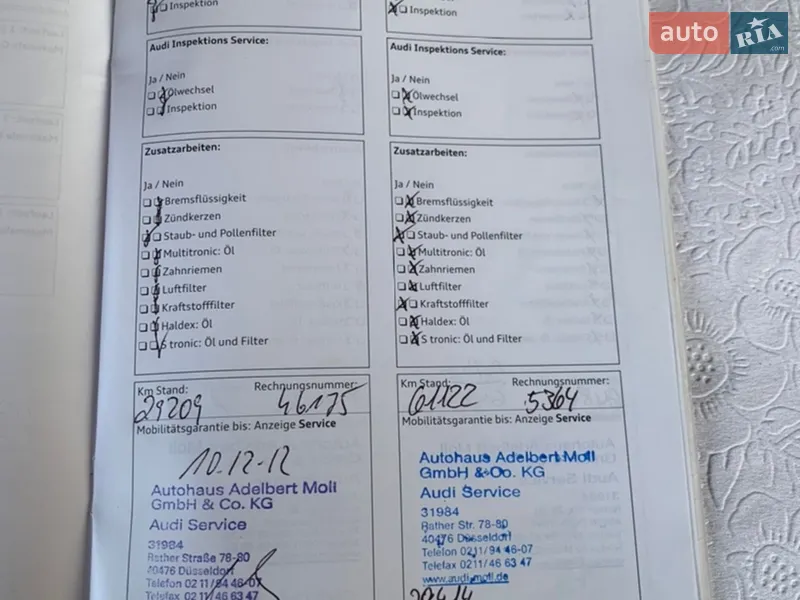 Inspektion
Audi Inspektions Service:
Ja / Nein
Ölwechsel
Inspektion
Zusatzarbeiten:
Ja / Nein
Bremsflüssigkeit
Zündkerzen
Staub- und Pollenfilter
Multitronic: Öl
Zahnriemen
Luftfilter
Kraftstofffilter
Haldex: Öl
S tronic: Öl und Filter
Km Stand: Rechnungsnummer:
29209 46175
Mobilitätsgarantie bis: Anzeige Service
10.12.12
Autohaus Adelbert Moll
GmbH & Co. KG
Audi Service
31984
Rather Straße 78-80
40476 Düsseldorf
Telefon 0211/94 46-07
Telefax 0211/46 63 47
Inspektion
Audi Inspektions Service:
Ja / Nein
Ölwechsel
Inspektion
Zusatzarbeiten:
Ja / Nein
Bremsflüssigkeit
Zündkerzen
Staub- und Pollenfilter
Multitronic: Öl
Zahnriemen
Luftfilter
Kraftstofffilter
Haldex: Öl
S tronic: Öl und Filter
Km Stand: Rechnungsnummer:
61122 5364
Mobilitätsgarantie bis: Anzeige Service
Autohaus Adelbert Moll
GmbH & Co. KG
Audi Service
31984
Rather Str. 78-80
40476 Düsseldorf
Telefon 0211/94 46-07
Telefax 0211/46 63 47
www.audi-moll.de
auto RIA
.com